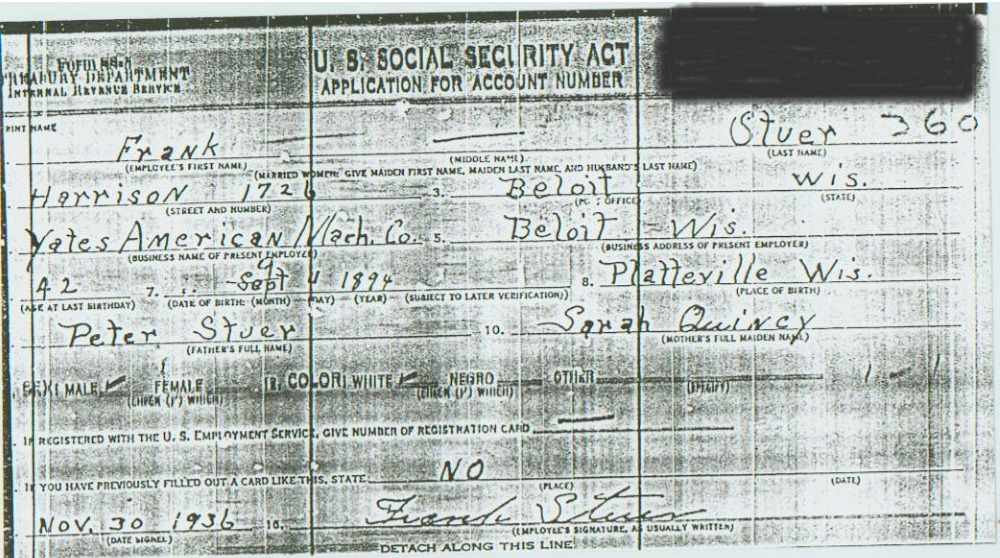 FORM SS-5
TREASURY DEPARTMENT
INTERNAL REVENUE SERVICE
U. S. SOCIAL SECURITY ACT
APPLICATION FOR ACCOUNT NUMBER
PRINT NAME
Frank Stuer 360
(EMPLOYEE'S FIRST NAME) (MIDDLE NAME) (LAST NAME)
(MARRIED WOMEN: GIVE MAIDEN FIRST NAME, MAIDEN LAST NAME, AND HUSBAND'S LAST NAME)
Harrison 1726 3. Beloit Wis.
(STREET AND NUMBER) (POST OFFICE) (STATE)
Yates American Mach. Co. 5. Beloit Wis.
(BUSINESS NAME OF PRESENT EMPLOYER) (BUSINESS ADDRESS OF PRESENT EMPLOYER)
42 7. Sept 9 4 1894 8. Platteville Wis.
(AGE AT LAST BIRTHDAY) (DATE OF BIRTH: (MONTH) (DAY) (YEAR) (SUBJECT TO LATER VERIFICATION)) (PLACE OF BIRTH)
Peter Stuer 10. Sarah Quincy
(FATHER'S FULL NAME) (MOTHER'S FULL MAIDEN NAME)
SEX: MALE ✓ FEMALE 12. COLOR: WHITE ✓ NEGRO OTHER 1 - 1
(CHECK (✓) WHICH) (CHECK (✓) WHICH) (SPECIFY)
IF REGISTERED WITH THE U. S. EMPLOYMENT SERVICE, GIVE NUMBER OF REGISTRATION CARD
IF YOU HAVE PREVIOUSLY FILLED OUT A CARD LIKE THIS, STATE NO
(PLACE) (DATE)
NOV. 30 1936 15. Frank Stuer
(DATE SIGNED) (EMPLOYEE'S SIGNATURE, AS USUALLY WRITTEN)
DETACH ALONG THIS LINE